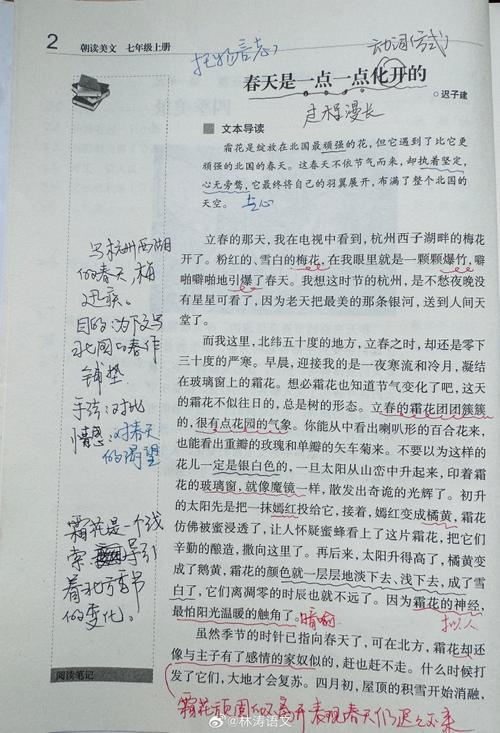 2 朝读美文 七年级上册
动词(方式)
春天是一点一点化开的
○迟子建
过程漫长
文本导读
霜花是绽放在北国最顽强的花,但它遇到了比它更
顽强的北国的春天。这春天不依节气而来,却执着坚定,
心无旁骛,它最终将自己的羽翼展开,布满了整个北国的
天空。
立春的那天,我在电视中看到,杭州西子湖畔的梅花
开了。粉红的、雪白的梅花,在我眼里就是一颗颗爆竹,噼
啪噼啪地引爆了春天。我想这时节的杭州,是不愁夜晚没
有星星可看了,因为老天把最美的那条银河,送到人间天
堂了。
而我这里,北纬五十度的地方,立春之时,却还是零下
三十度的严寒。早晨,迎接我的是一夜寒流和冷月,凝结
在玻璃窗上的霜花。想必霜花也知道节气变化了吧,这天
的霜花不似往日的,总是树的形态。立春的霜花团团簇簇
的,很有点花园的气象。你能从中看出喇叭形的百合花来,
也能看出重瓣的玫瑰和单瓣的矢车菊来。不要以为这样的
花儿一定是银白色的,一旦太阳从山峦中升起来,印着霜
花的玻璃窗,就像魔镜一样,散发出奇诡的光辉了。初升
的太阳先是把一抹嫣红投给它,接着,嫣红变成橘黄,霜花
仿佛被蜜浸透了,让人怀疑蜜蜂看上了这片霜花,把它们
辛勤的酿造,撒向这里了。再后来,太阳升得高了,橘黄变
成了鹅黄,霜花的颜色就一层层地淡下去、浅下去,成了雪
白了,它们离凋零的时辰也就不远了。因为霜花的神经,
最怕阳光温暖的触角了。
暗喻
拟人
虽然季节的时针已指向春天了,可在北方,霜花却还
像与主子有了感情的家奴似的,赶也赶不走。什么时候打
发了它们,大地才会复苏。四月初,屋顶的积雪开始消融,
霜花顽固的不离开表现春天仍迟迟不来
写杭州西湖
的春天,梅
迎春。
目的:为下文写
北国的春作
铺垫
手法:对比
情感:对春天
的渴望
霜花是一个线
索 导引
着北方季节
的变化。
阅读笔记
@林涛语文